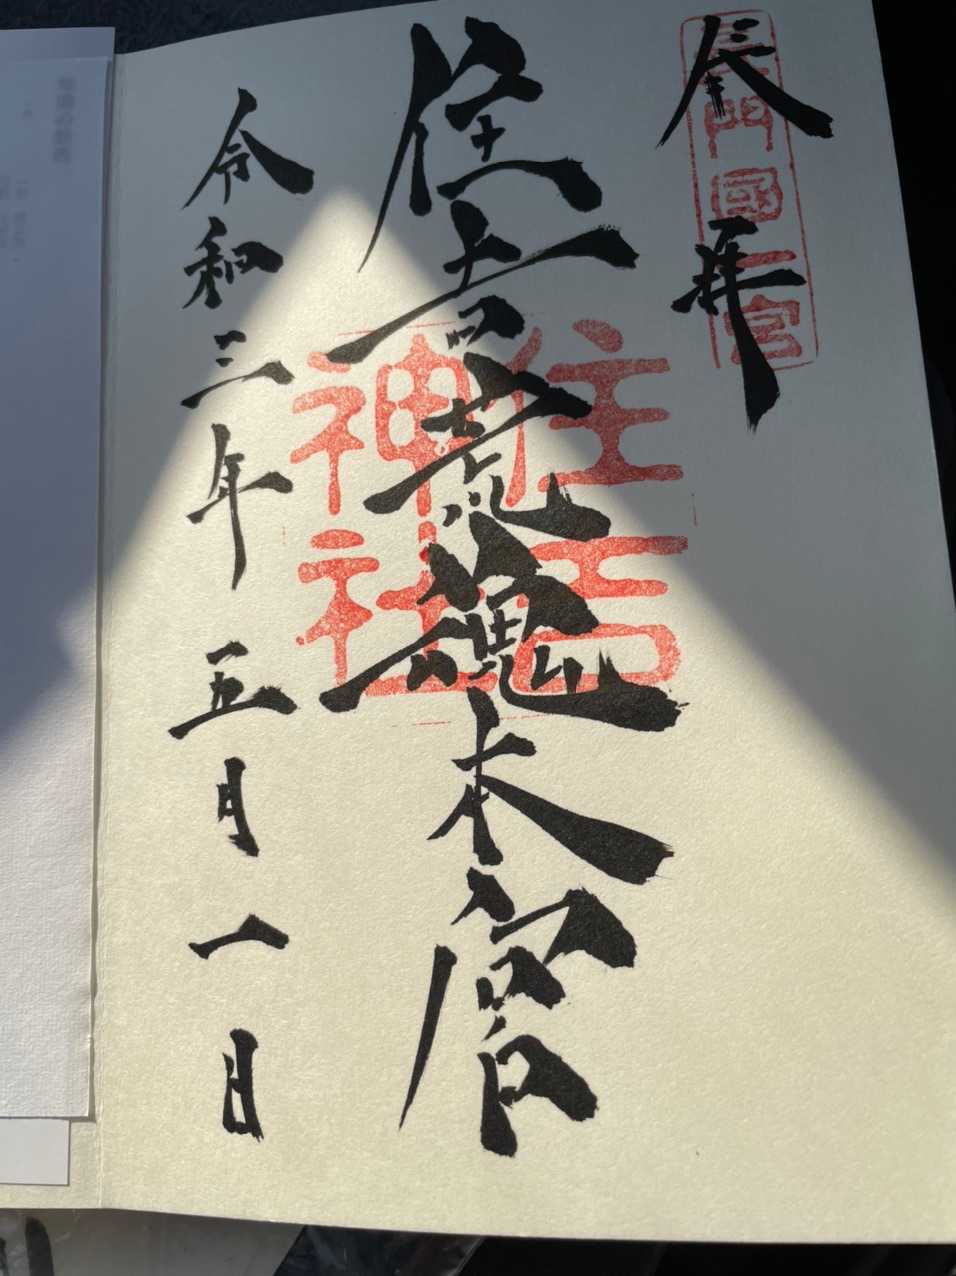 奉拝
長門國一宮
住吉荒魂本宮
住吉
神社
令和三年五月一日